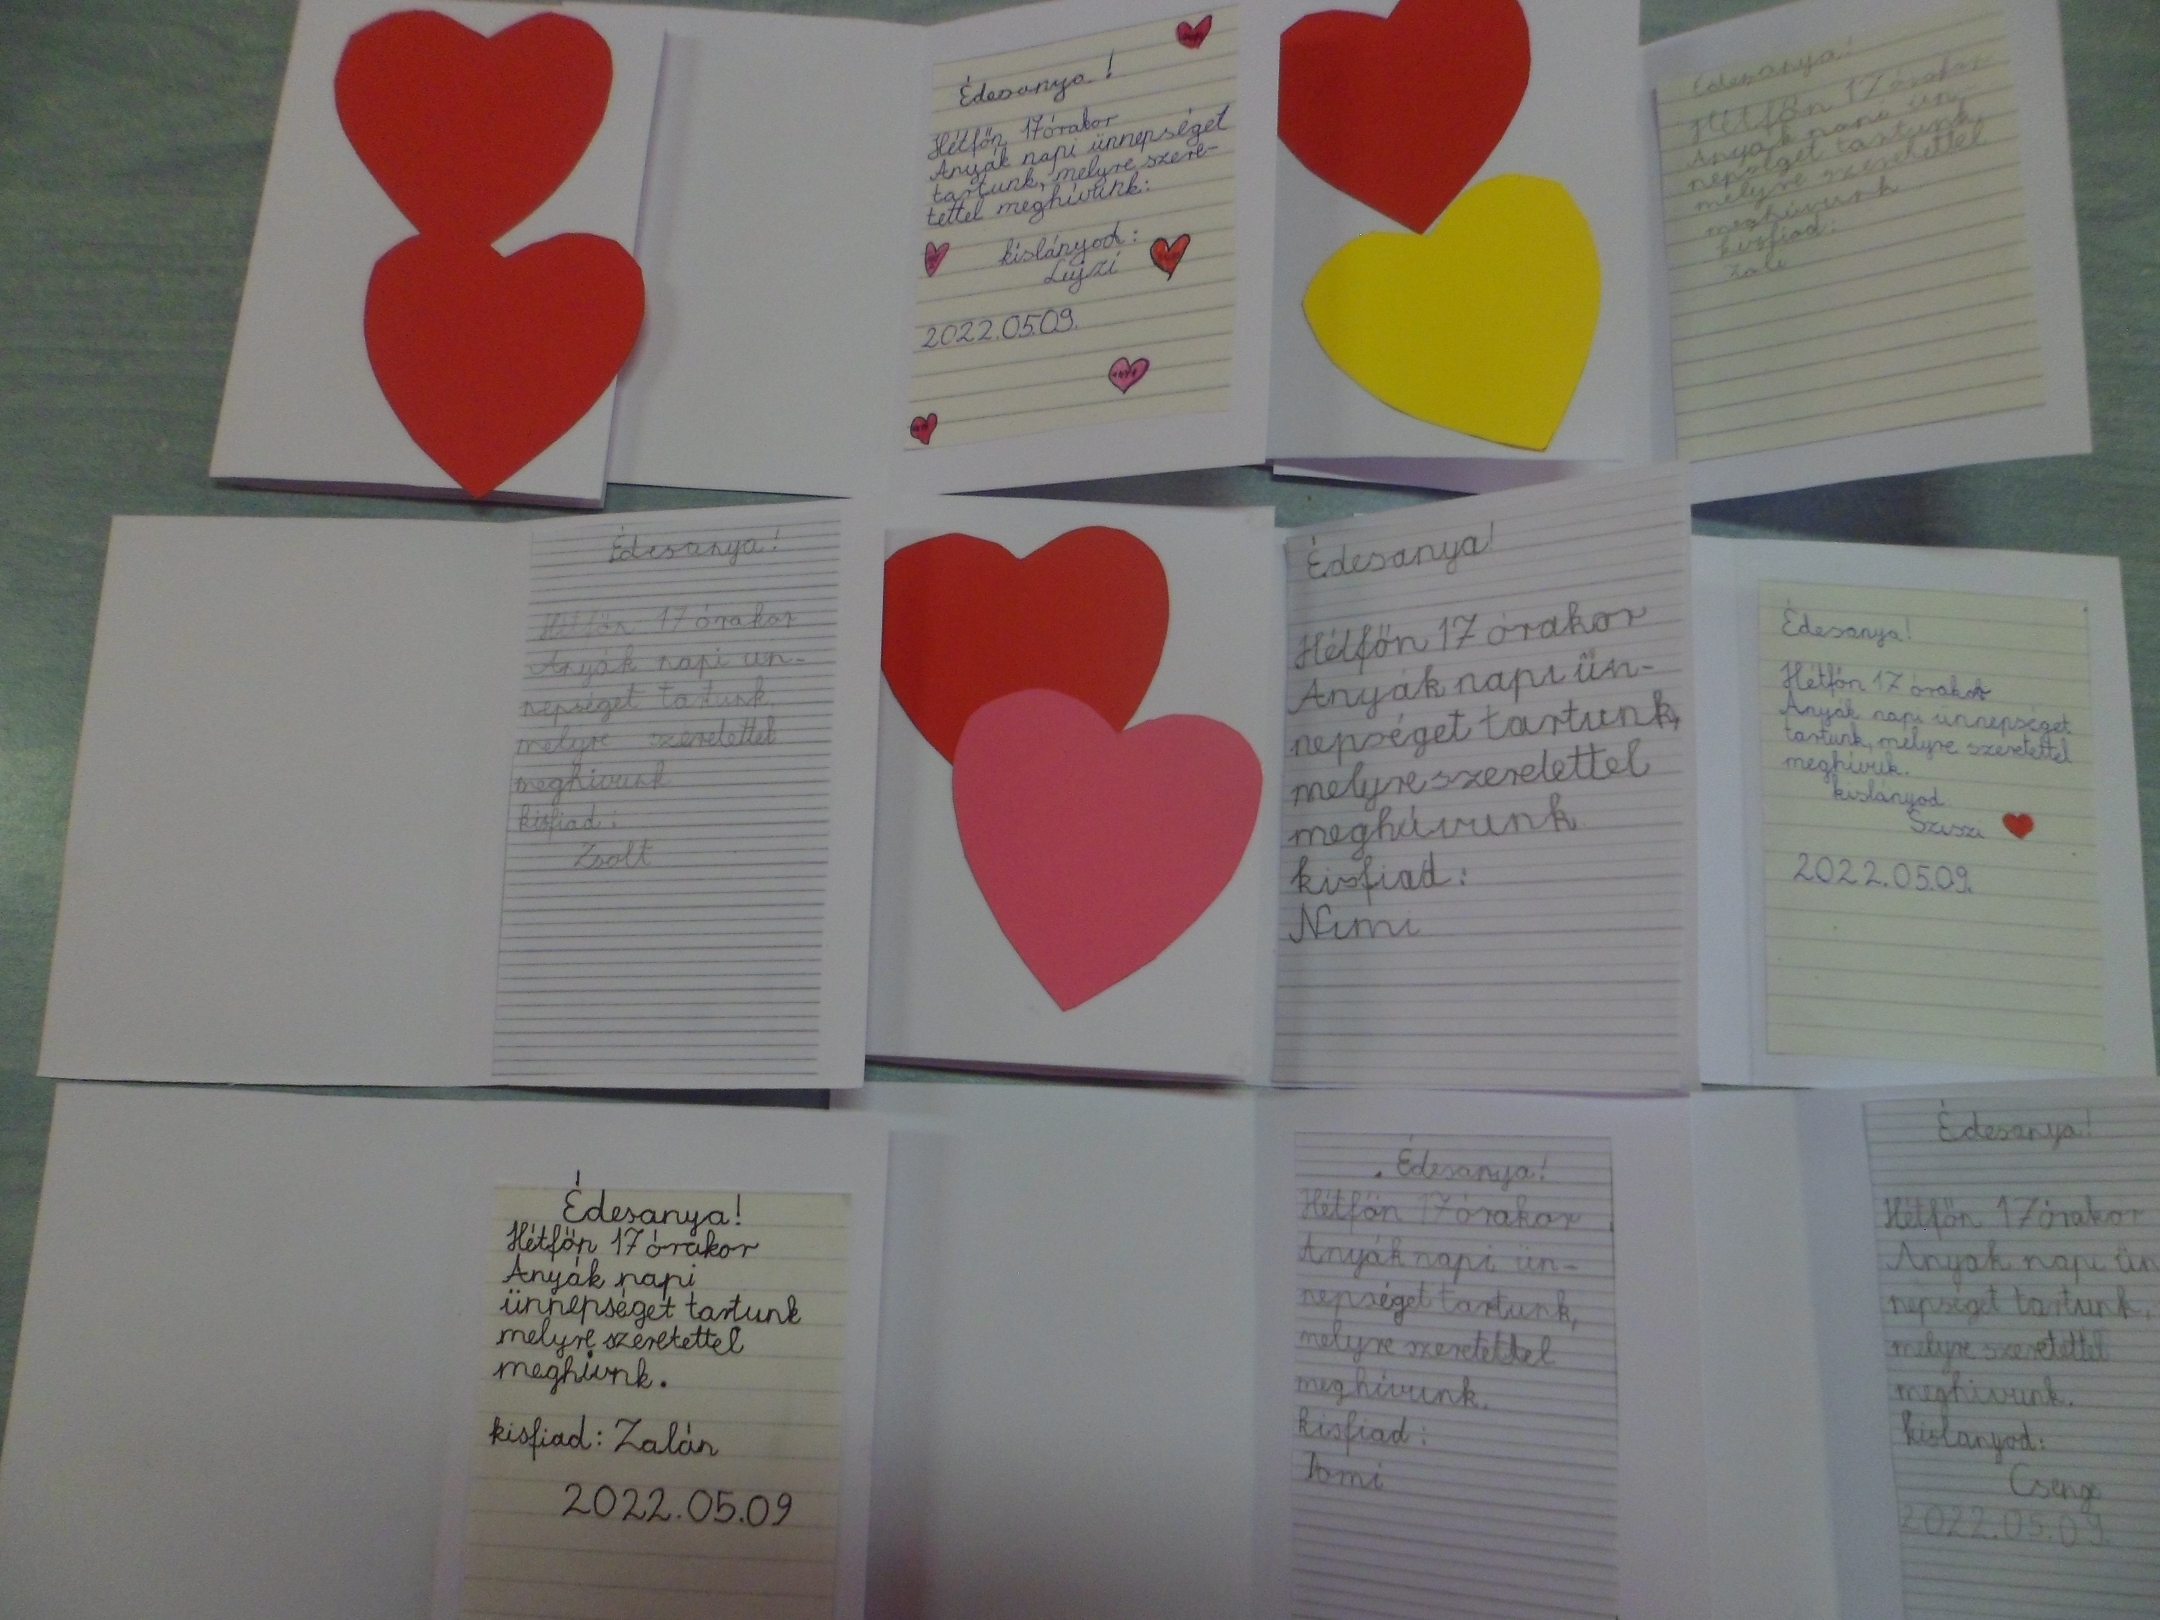 Édesanya!
Hétfőn 17 órakor
Anyák napi ünnepséget
tartunk, melyre szere-
tettel meghívunk:
kislányod:
Lujzi
2022.05.09.
Édesanya!
Hétfőn 17 órakor
Anyák napi ün-
nepséget tartunk,
melyre szeretettel
meghívunk
kisfiad:
Édesanya!
Hétfőn 17 órakor
Anyák napi ün-
nepséget tartunk,
melyre szeretettel
meghívunk
kisfiad:
Zsolt
Édesanya!
Hétfőn 17 órakor
Anyák napi ün-
nepséget tartunk,
melyre szeretettel
meghívunk
kisfiad:
Nimi
Édesanya!
Hétfőn 17 órakor
Anyák napi ünnepséget
tartunk, melyre szeretettel
meghívuk.
kislányod
Sziszi
2022.05.09.
Édesanya!
Hétfőn 17 órakor
Anyák napi
ünnepséget tartunk
melyre szeretettel
meghívnk.
kisfiad: Zalán
2022.05.09
Édesanya!
Hétfőn 17 órakor
Anyák napi ün-
nepséget tartunk,
melyre szeretettel
meghívunk.
kisfiad:
Édesanya!
Hétfőn 17 órakor
Anyák napi ün
nepséget tartunk,
melyre szeretettel
meghívunk.
kislányod:
Csenge
2022.05.09.